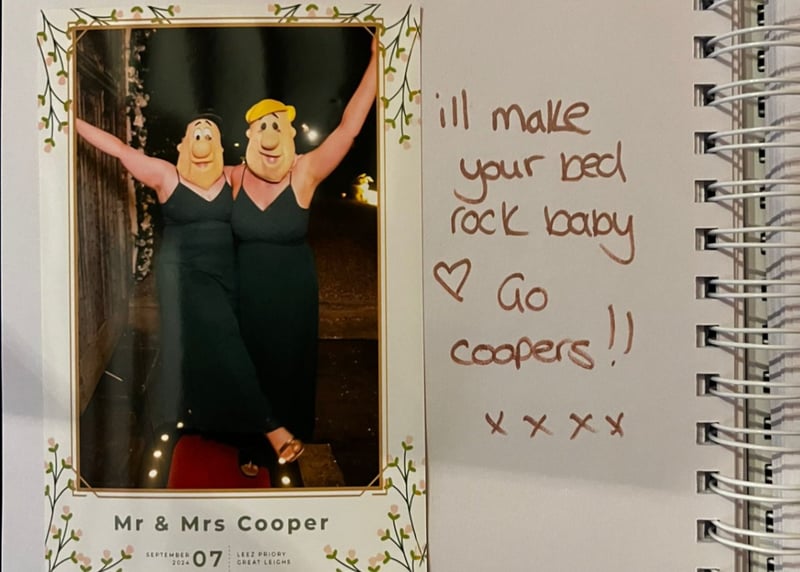 ill make
your bed
rock baby
♡ Go
coopers!!
x x x x
Mr & Mrs Cooper
SEPTEMBER 2024 07 LEEZ PRIORY
GREAT LEIGHS